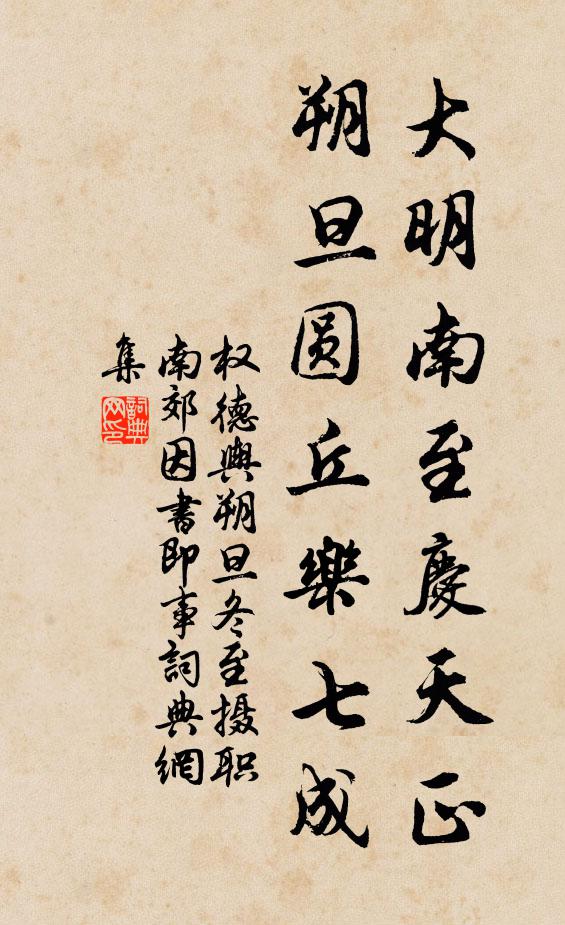 大明南至慶天正
朔旦圆丘樂七成
权德輿朔旦冬至摄职
南郊因書即事詞典網
集
詞典网印